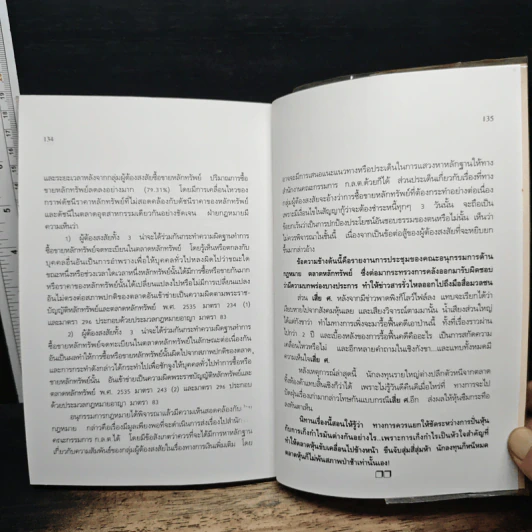 134
และระยะเวลาหลังจากกลุ่มผู้ต้องสงสัยซื้อขายหลักทรัพย์ ปริมาณการซื้อ
ขายหลักทรัพย์ลดลงอย่างมาก (79.31%) โดยมีการเคลื่อนไหวของ
กราฟดัชนีราคาหลักทรัพย์ที่ไม่สอดคล้องกับดัชนีราคาของหลักทรัพย์
และดัชนีในตลาดอุตสาหกรรมเดียวกันอย่างชัดเจน ฝ่ายกฎหมายมี
ความเห็นว่า
1) ผู้ต้องสงสัยทั้ง 3 น่าจะได้ร่วมกันกระทำความผิดฐานทำการ
ซื้อขายหลักทรัพย์จดทะเบียนในตลาดหลักทรัพย์ โดยรู้เห็นหรือตกลงกับ
บุคคลอื่นอันเป็นการอำพรางเพื่อให้บุคคลทั่วไปหลงผิดไปว่าขณะใด
ขณะหนึ่งหรือช่วงเวลาใดเวลาหนึ่งหลักทรัพย์นั้นได้มีการซื้อหรือขายกันมาก
หรือราคาของหลักทรัพย์นั้นได้เปลี่ยนแปลงไปหรือไม่มีการเปลี่ยนแปลง
อันไม่ตรงต่อสภาพปกติของตลาดอันเข้าข่ายเป็นความผิดตามพระราช-
บัญญัติหลักทรัพย์และตลาดหลักทรัพย์ พ.ศ. 2535 มาตรา 243 (1)
และมาตรา 296 ประกอบด้วยประมวลกฎหมายอาญา มาตรา 83
2) ผู้ต้องสงสัยทั้ง 3 น่าจะได้ร่วมกันกระทำความผิดฐานทำการ
ซื้อขายหลักทรัพย์จดทะเบียนในตลาดหลักทรัพย์ในลักษณะต่อเนื่องกัน
อันเป็นผลทำให้การซื้อหรือขายหลักทรัพย์นั้นผิดไปจากสภาพปกติของตลาด,
และการกระทำดังกล่าวได้กระทำไปเพื่อชักจูงให้บุคคลทั่วไปทำการซื้อหรือ
ขายหลักทรัพย์นั้น อันเข้าข่ายเป็นความผิดพระราชบัญญัติหลักทรัพย์และ
ตลาดหลักทรัพย์ พ.ศ. 2535 มาตรา 243 (2) และมาตรา 296 ประกอบ
ด้วยประมวลกฎหมายอาญา มาตรา 83
อนุกรรมการกฎหมายได้พิจารณาแล้วมีความเห็นสอดคล้องกับ
กฎหมาย กล่าวคือเรื่องนี้มีมูลเพียงพอที่จะดำเนินการส่งเรื่องไป
คณะกรรมการ ก.ล.ต ได้ โดยมีข้อสังเกตว่าควรที่จะได้มีการหาหลักฐาน
เกี่ยวกับความสัมพันธ์ของกลุ่มผู้ต้องสงสัยในเรื่องทางการเงินเพิ่มเติม โดย
135
อาจจะมีการเสนอแนะแนวทางหรือประเด็นในการแสวงหาหลักฐานให้ทาง
สำนักงานคณะกรรมการ ก.ล.ต.ด้วยก็ได้ ส่วนประเด็นเกี่ยวกับเรื่องที่ทาง
กลุ่มผู้ต้องสงสัยจะอ้างว่าการซื้อขายหลักทรัพย์ที่ต้องกระทำอย่างต่อเนื่อง
เพราะมีเงื่อนไขในสัญญากู้ว่าจะต้องชำระหนี้ทุกๆ 3 วันนั้น จะถือเป็น
ข้อยกเว้นว่าเป็นการปกป้องประโยชน์อันชอบธรรมของตนหรือไม่นั้น เห็นว่า
ไม่ควรพิจารณาในชั้นนี้ เนื่องจากเป็นข้อต่อสู้ของผู้ต้องสงสัยที่จะหยิบยก
ขึ้นมากล่าวอ้าง
ข้อความข้างต้นนี้คือรายงานการประชุมของคณะอนุกรรมการด้าน
กฎหมาย ตลาดหลักทรัพย์ ซึ่งต่อมากระทรวงการคลังออกมารับผิดชอบ
ว่ามีความบกพร่องบางประการ ทำให้ข่าวสารรั่วไหลออกไปถึงมือสื่อมวลชน
ส่วน เสี่ย ศ. หลังจากมีข่าวพาดพิงก็ไสวไฟล้อง แทบจะเรียกได้ว่า
เงียบหายไปจากสังคมหุ้นเลย และเสียงวิจารณ์ตามมานั้น น้ำเสียงส่วนใหญ่
ได้แต่กังขาว่า ทำไมทางการเพิ่งจะมารื้อฟื้นคดีเอาป่านนี้ ทั้งที่เรื่องราวผ่าน
ไปกว่า 2 ปี และเบื้องหลังของการรื้อฟื้นคดีคืออะไร เป็นการสกัดความ
เคลื่อนไหวหรือไม่ และอีกหลายคำถามในเชิงกังขา...และแทบทั้งหมดมี
ความเห็นใจเสี่ย ศ.
หลังเหตุการณ์ล่าสุดนี้ นักลงทุนรายใหญ่ต่างปลีกตัวหนีจากตลาด
ทั้งห้องค้าแทบสิ้นเชิงก็ว่าได้ เพราะไม่รู้วันดีคืนดีเมื่อไหร่ที่ ทางการจะไป
ปัดฝุ่นเรื่องเก่ามากล่าวโทษกันแบบกรณีเสี่ย ศ.อีก ส่งผลให้หุ้นซึมกระทือ
ลงทันตาเห็น
นิทานเรื่องนี้สอนให้รู้ว่า ทางการควรแยกให้ชัดระหว่างการปั่นหุ้น
กับการเก็งกำไรมันต่างกันอย่างไร...เพราะการเก็งกำไรเป็นหัวใจสำคัญที่
ทำให้ตลาดหุ้นขับเคลื่อนไปข้างหน้า ขืนจับสุ่มสี่สุ่มห้า นักลงทุนก็หนีหมด
ตลาดหุ้นก็ไม่พ้นสภาพป่าช้าเท่านั้นเอง!